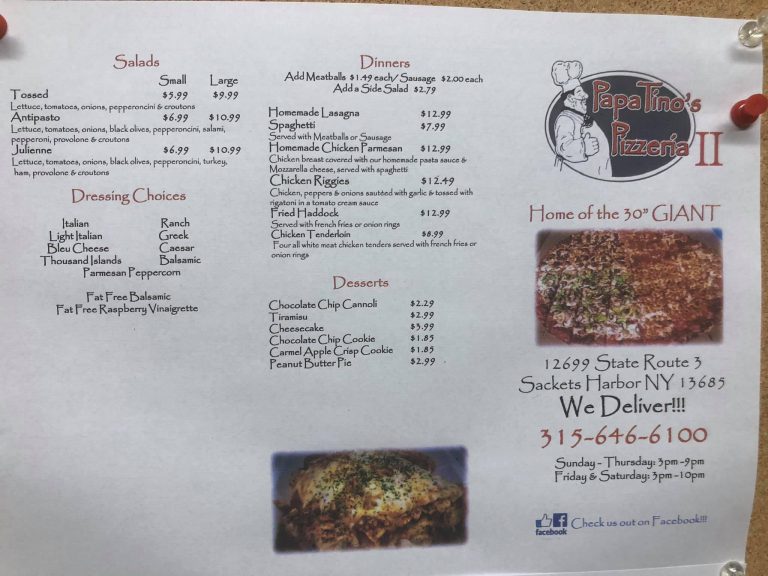 Salads
Small Large
Tossed $5.99 $9.99
Lettuce, tomatoes, onions, pepperoncini & croutons
Antipasto $6.99 $10.99
Lettuce, tomatoes, onions, black olives, pepperoncini, salami,
pepperoni, provolone & croutons
Julienne $6.99 $10.99
Lettuce, tomatoes, onions, black olives, pepperoncini, turkey,
ham, provolone & croutons
Dressing Choices
Italian Ranch
Light Italian Greek
Bleu Cheese Caesar
Thousand Islands Balsamic
Parmesan Peppercorn
Fat Free Balsamic
Fat Free Raspberry Vinaigrette
Dinners
Add Meatballs $1.49 each/ Sausage $2.00 each
Add a Side Salad $2.79
Homemade Lasagna $12.99
Spaghetti $7.99
Served with Meatballs or Sausage
Homemade Chicken Parmesan $12.99
Chicken breast covered with our homemade pasta sauce &
Mozzarella cheese, served with spaghetti
Chicken Riggies $12.49
Chicken, peppers & onions sautéed with garlic & tossed with
rigatoni in a tomato cream sauce
Fried Haddock $12.99
Served with french fries or onion rings
Chicken Tenderloin $8.99
Four all white meat chicken tenders served with french fries or
onion rings
Desserts
Chocolate Chip Cannoli $2.29
Tiramisu $2.99
Cheesecake $3.99
Chocolate Chip Cookie $1.85
Carmel Apple Crisp Cookie $1.85
Peanut Butter Pie $2.99
Papa Tino's
Pizzeria II
Home of the 30" GIANT
12699 State Route 3
Sackets Harbor NY 13685
We Deliver!!!
315-646-6100
Sunday - Thursday: 3pm -9pm
Friday & Saturday: 3pm -10pm
facebook Check us out on Facebook!!!